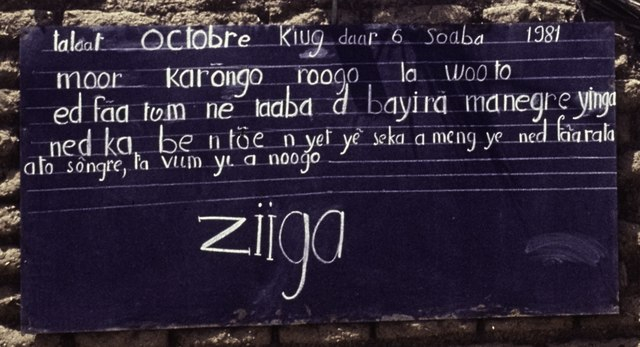 talaat OCTOBRE Kiug daar 6 Soaba 1981
moor karõngo roogo la wooto
ed fãa tʋm ne taaba d bayirã manegre yĩnga
ned ka be n tõe n yet yẽ seka a meng ye ned fãa rata
a to sõngre, ta vɩɩm yɩ a noogo
ziiga